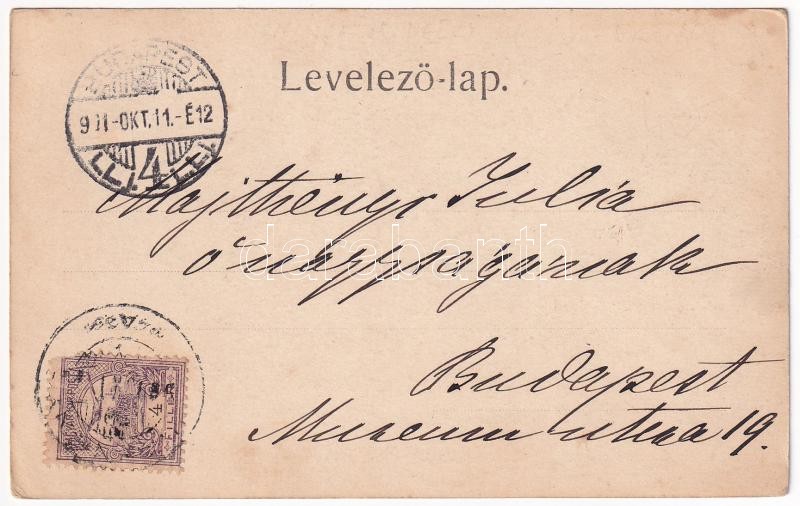 Levelező-lap.
BUDAPEST
901-OKT.11.-É12
4
Majthényi Julia
őnagyságának
Budapest
Museum utcza 19.
4
FILLÉR
darabanth